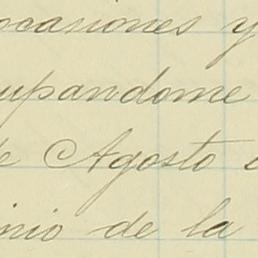 ocasiones y
upandome
de Agosto
inio de la